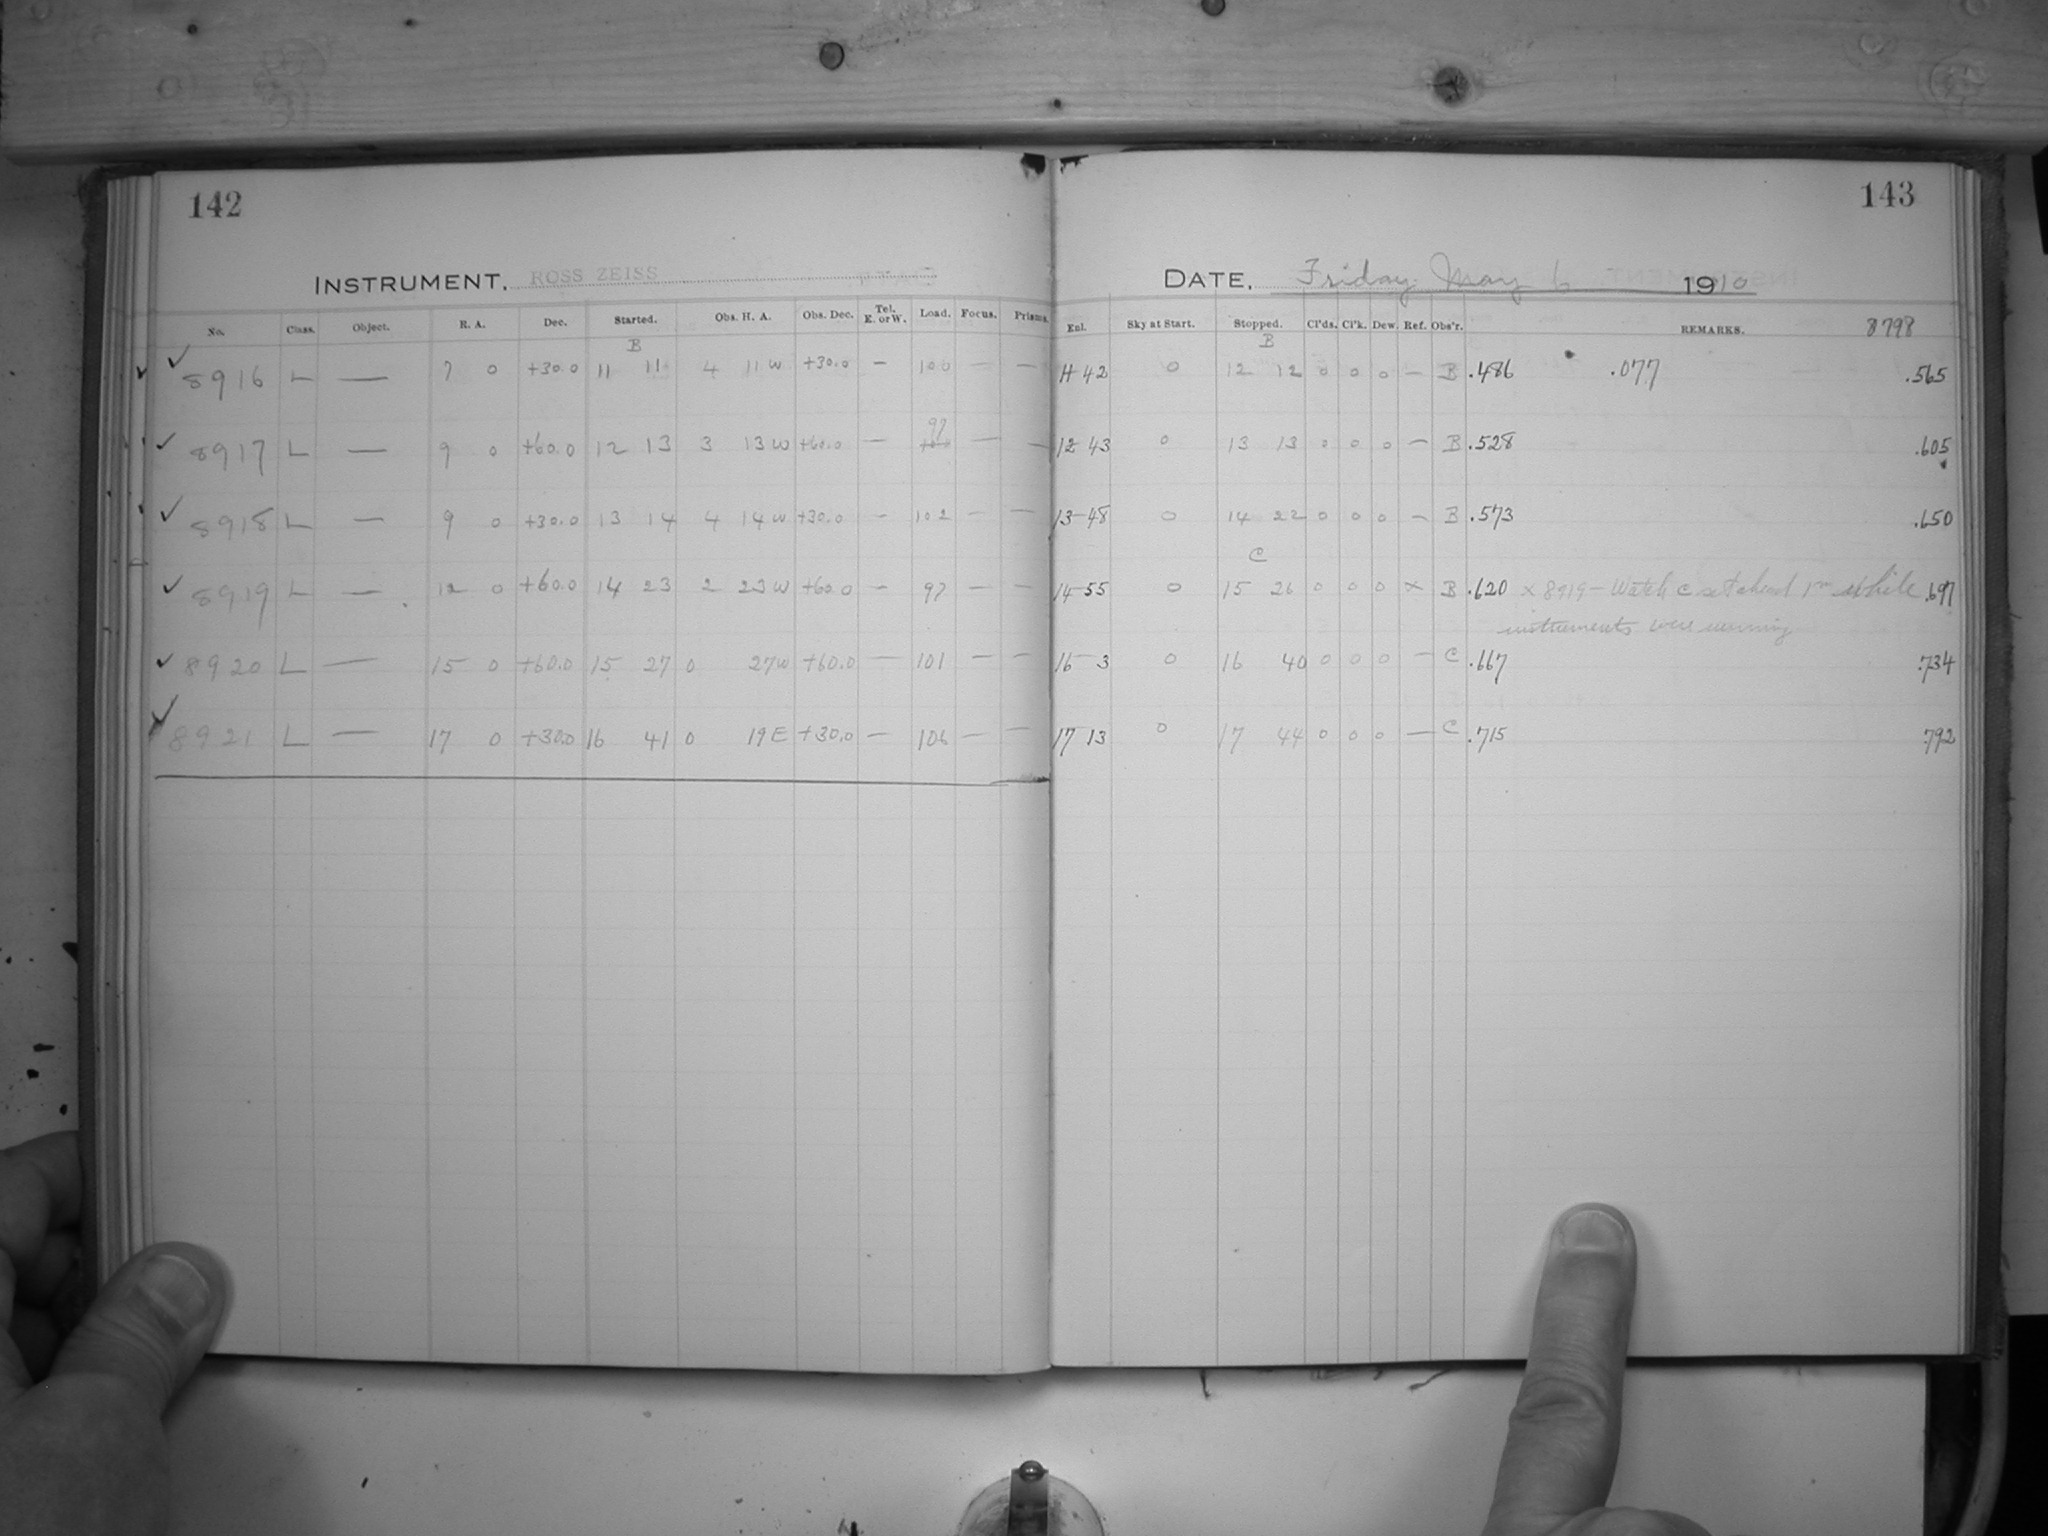 142
143
INSTRUMENT, ROSS ZEISS
DATE, Friday May 6 1910
No. Class. Object. R. A. Dec. Started. Obs. H. A. Obs. Dec. Tel. E. or W. Load. Focus. Prisms. Enl. Sky at Start. Stopped. Cl'ds. Cl'k. Dew. Ref. Obs'r. REMARKS. 8798
B B
✓ ✓ 8916 L — 7 0 +30.0 11 11 4 11 W +30.0 — 100 — — 11 42 0 12 12 0 0 0 — B .486 .077 .565
97
✓ 8917 L — 9 0 +60.0 12 13 3 13 W +60.0 — 100 — — 12 43 0 13 13 0 0 0 — B .528 .605
✓ 8918 L — 9 0 +30.0 13 14 4 14 W +30.0 — 102 — — 13 48 0 14 22 0 0 0 — B .573 .650
C
✓ 8919 L — 12 0 +60.0 14 23 2 23 W +60.0 — 97 — — 14 55 0 15 26 0 0 0 × B .620 × 8919 — Watch C set ahead 1m while .697
instruments were running
✓ 8920 L — 15 0 +60.0 15 27 0 27 W +60.0 — 101 — — 16 3 0 16 40 0 0 0 — C .667 .734
✓ 8921 L — 17 0 +30.0 16 41 0 19 E +30.0 — 106 — — 17 13 0 17 44 0 0 0 — C .715 .792